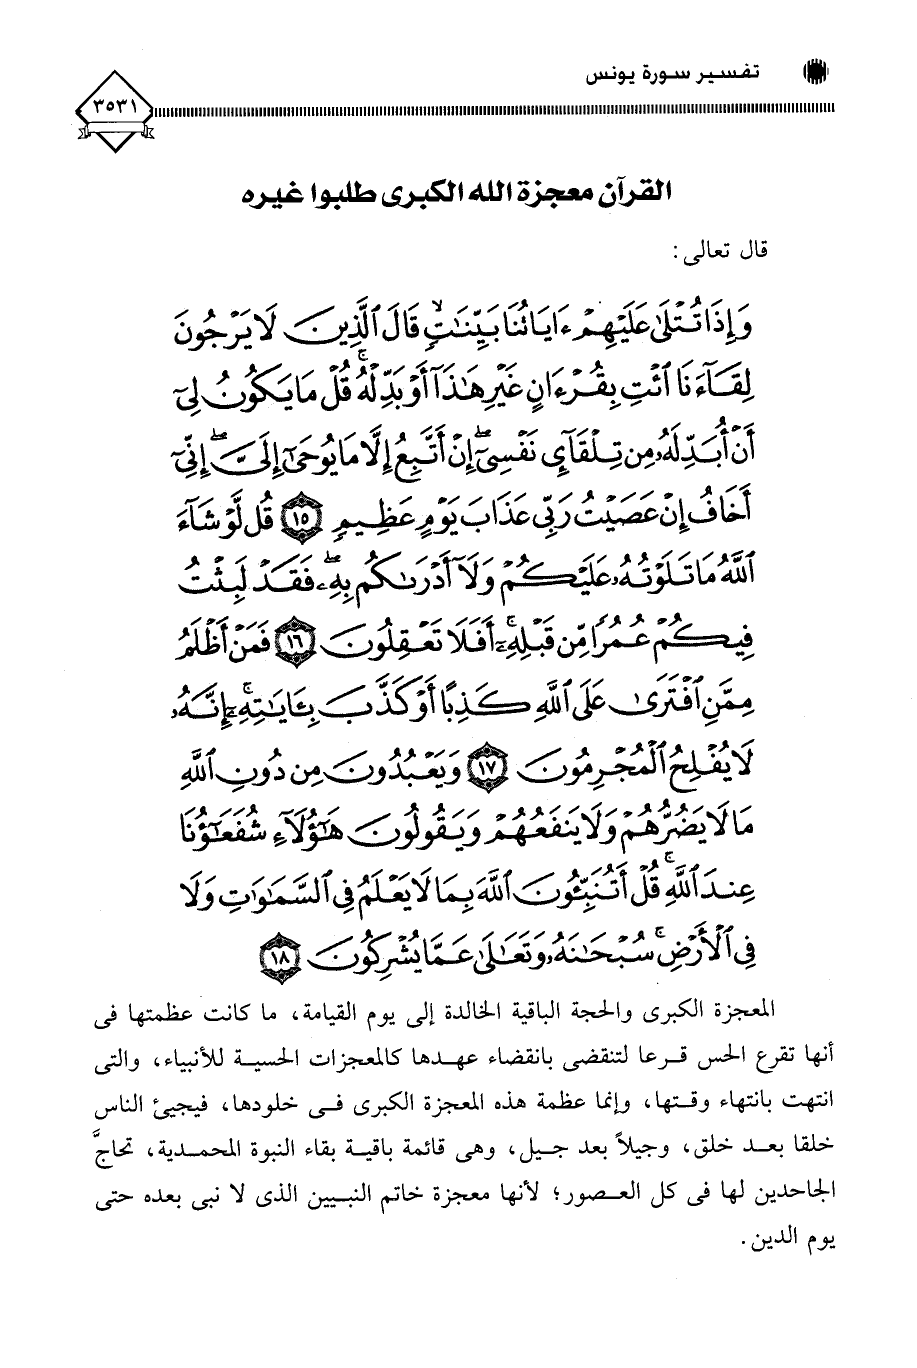 تفسير سورة يونس
٣٥٣١
القرآن معجزة الله الكبرى طلبوا غيره
قال تعالى :
وَإِذَا تُتْلَىٰ عَلَيْهِمْ ءَايَاتُنَا بَيِّنَٰتٍۙ قَالَ ٱلَّذِينَ لَا يَرْجُونَ
لِقَآءَنَا ٱئْتِ بِقُرْءَانٍ غَيْرِ هَٰذَآ أَوْ بَدِّلْهُۚ قُلْ مَا يَكُونُ لِىٓ
أَنْ أُبَدِّلَهُۥ مِن تِلْقَآئِ نَفْسِىٓۖ إِنْ أَتَّبِعُ إِلَّا مَا يُوحَىٰٓ إِلَىَّۖ إِنِّىٓ
أَخَافُ إِنْ عَصَيْتُ رَبِّى عَذَابَ يَوْمٍ عَظِيمٍ ١٥ قُل لَّوْ شَآءَ
ٱللَّهُ مَا تَلَوْتُهُۥ عَلَيْكُمْ وَلَآ أَدْرَىٰكُم بِهِۦۖ فَقَدْ لَبِثْتُ
فِيكُمْ عُمُرًا مِّن قَبْلِهِۦٓۚ أَفَلَا تَعْقِلُونَ ١٦ فَمَنْ أَظْلَمُ
مِمَّنِ ٱفْتَرَىٰ عَلَى ٱللَّهِ كَذِبًا أَوْ كَذَّبَ بِـَٔايَٰتِهِۦٓۚ إِنَّهُۥ
لَا يُفْلِحُ ٱلْمُجْرِمُونَ ١٧ وَيَعْبُدُونَ مِن دُونِ ٱللَّهِ
مَا لَا يَضُرُّهُمْ وَلَا يَنفَعُهُمْ وَيَقُولُونَ هَٰٓؤُلَآءِ شُفَعَٰٓؤُنَا
عِندَ ٱللَّهِۚ قُلْ أَتُنَبِّـُٔونَ ٱللَّهَ بِمَا لَا يَعْلَمُ فِى ٱلسَّمَٰوَٰتِ وَلَا
فِى ٱلْأَرْضِۚ سُبْحَٰنَهُۥ وَتَعَٰلَىٰ عَمَّا يُشْرِكُونَ ١٨
المعجزة الكبرى والحجة الباقية الخالدة إلى يوم القيامة، ما كانت عظمتها فى
أنها تقرع الحس قرعا لتنقضى بانقضاء عهدها كالمعجزات الحسية للأنبياء، والتى
انتهت بانتهاء وقتها، وإنما عظمة هذه المعجزة الكبرى فى خلودها، فيجيئ الناس
خلقا بعد خلق، وجيلاً بعد جيل، وهى قائمة باقية بقاء النبوة المحمدية، تحاجَّ
الجاحدين لها فى كل العصور؛ لأنها معجزة خاتم النبيين الذى لا نبى بعده حتى
يوم الدين .